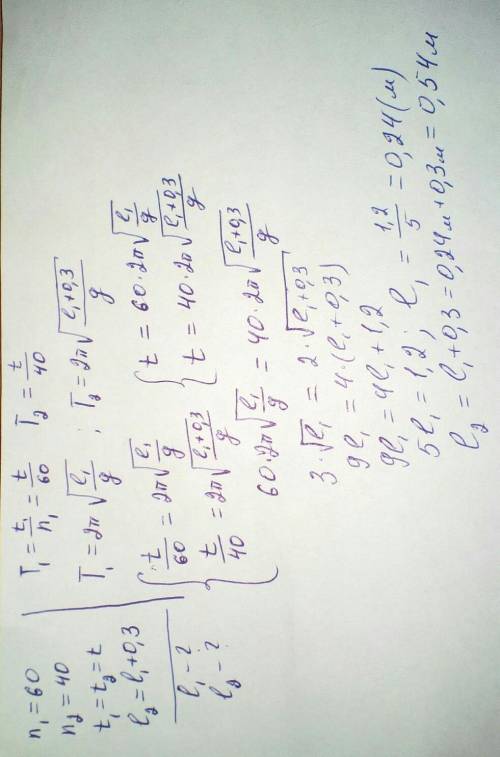 n₁ = 60
n₂ = 40
t₁ = t₂ = t
l₂ = l₁ + 0,3
l₁ - ?
l₂ - ?
T₁ = t₁/n₁ = t/60   T₂ = t/40
T₁ = 2π√(l₁/g) ; T₂ = 2π√((l₁+0,3)/g)
{ t/60 = 2π√(l₁/g)   { t = 60·2π√(l₁/g)
{ t/40 = 2π√((l₁+0,3)/g)   { t = 40·2π√((l₁+0,3)/g)
60·2π√(l₁/g) = 40·2π√((l₁+0,3)/g)
3·√l₁ = 2·√(l₁+0,3)
9l₁ = 4·(l₁+0,3)
9l₁ = 4l₁ + 1,2
5l₁ = 1,2 ; l₁ = 1,2/5 = 0,24 (м)
l₂ = l₁ + 0,3 = 0,24м + 0,3м = 0,54м